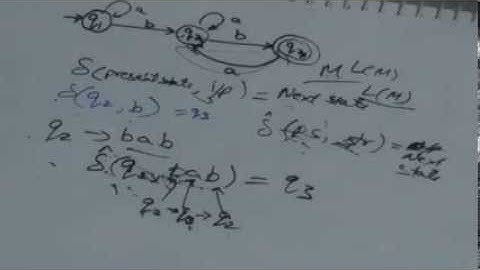 q1 a b q2 a b q3
a
δ(present state, i/p) = Next state
M L(M)
L(M)
δ(q2, b) = q3
δ̂(ps, str) = Next state
q2 → bab
δ̂(q2, bab) = q3
q2 → q2